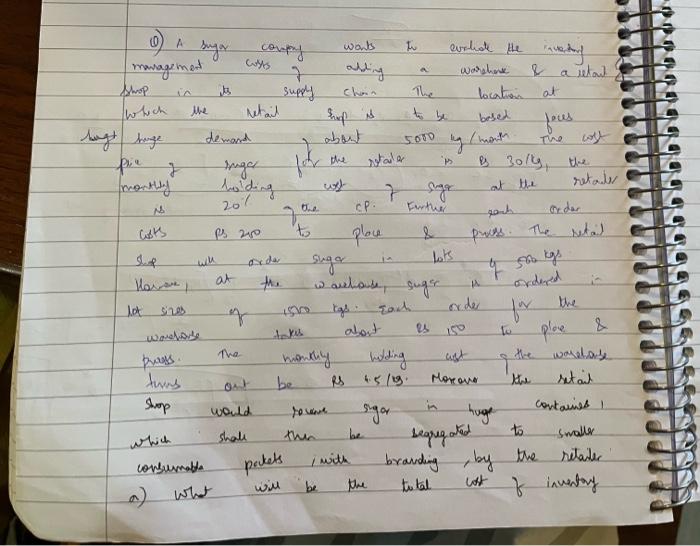 Q) A sugar company wants to evaluate the inventory
management costs of adding a warehouse & a retail
shop in its supply chain The location at
which the retail shop is to be based faces
huge demand of about 5000 kg/month. The cost
price of sugar for the retailer is Rs 30/kg, the
monthly holding cost of sugar at the retailer
is 20% of the CP. Further each order
costs Rs 200 to place & process. The retail
shop will order sugar in lots of 500 kgs.
However, at the warehouse, sugar is ordered in
lot sizes of 1500 kgs. Each order for the
warehouse takes about Rs 150 to place &
process. The monthly holding cost of the warehouse
turns out be Rs 4.5/kg. Moreover the retail
shop would receive sugar in huge containers,
which shall then be segregated to smaller
consumable packets, with branding, by the retailer
a) What will be the total cost of inventory